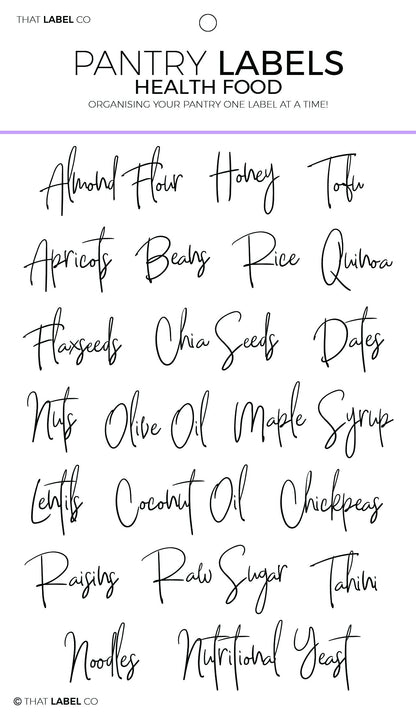 THAT LABEL CO
PANTRY LABELS
HEALTH FOOD
ORGANISING YOUR PANTRY ONE LABEL AT A TIME!
Almond Flour Honey Tofu
Apricots Beans Rice Quinoa
Flaxseeds Chia Seeds Dates
Nuts Olive Oil Maple Syrup
Lentils Coconut Oil Chickpeas
Raisins Raw Sugar Tahini
Noodles Nutritional Yeast
© THAT LABEL CO